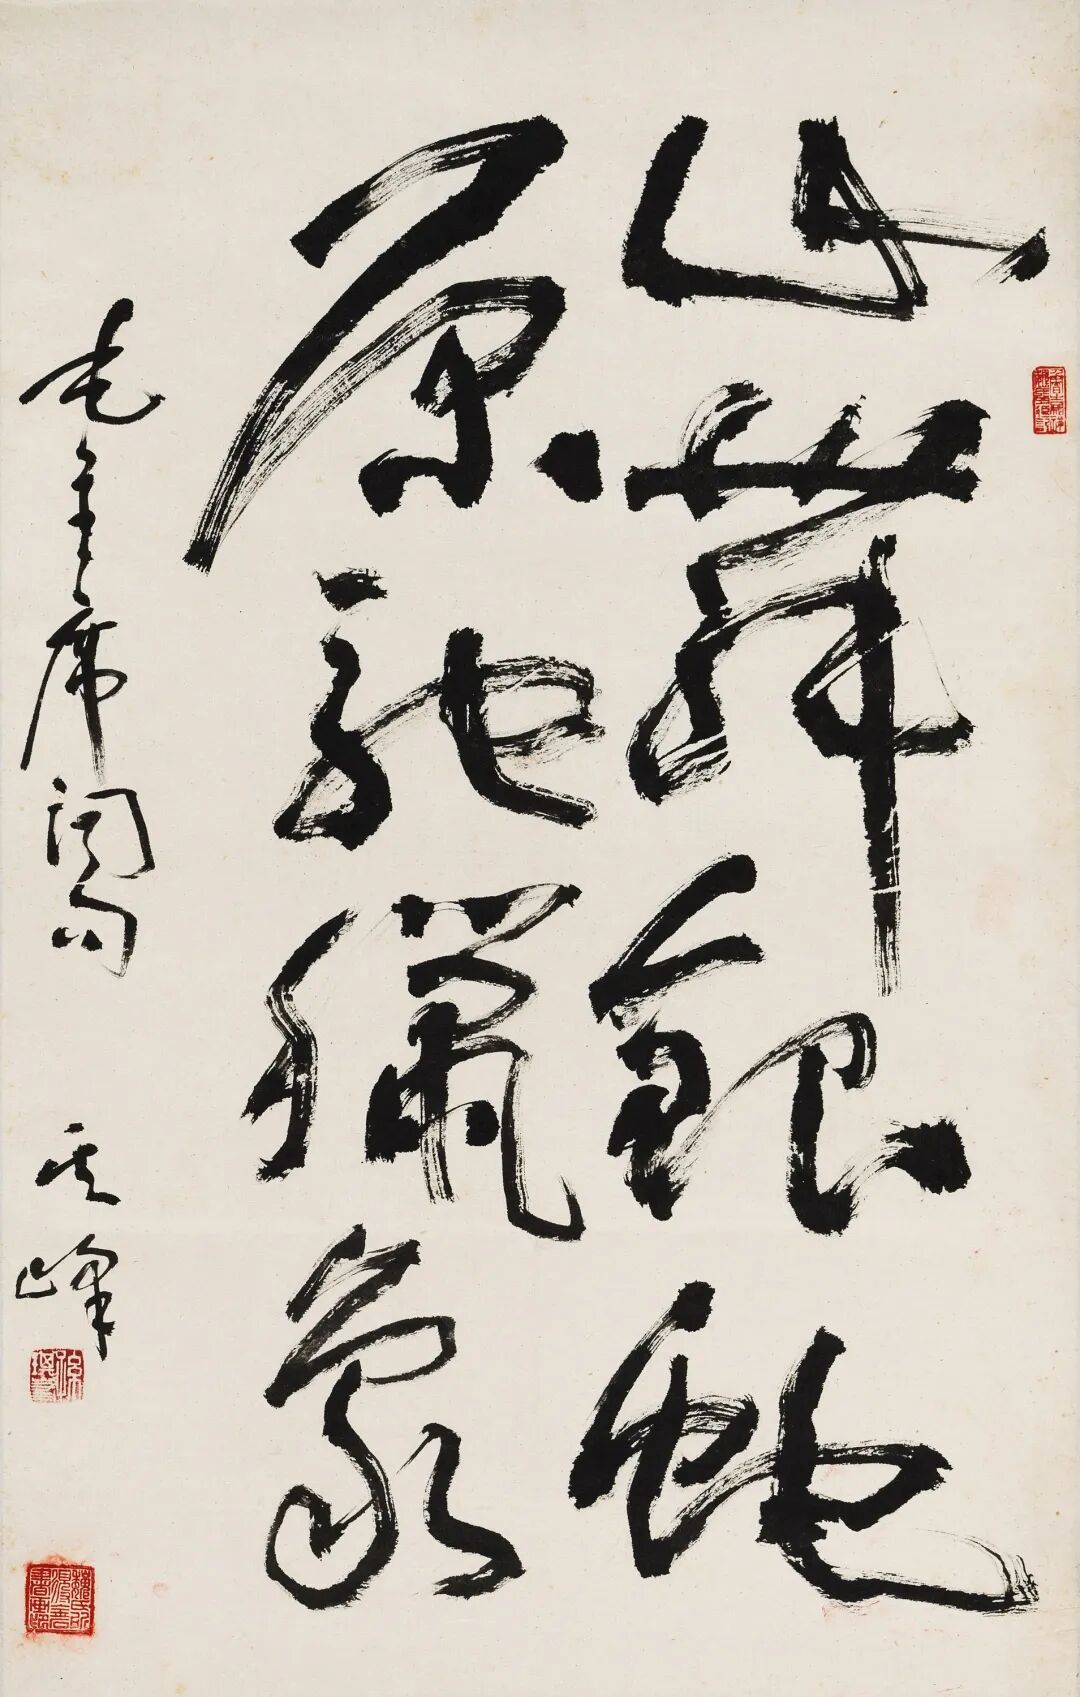 山舞银蛇
原驰腊象
毛主席词句
之峰